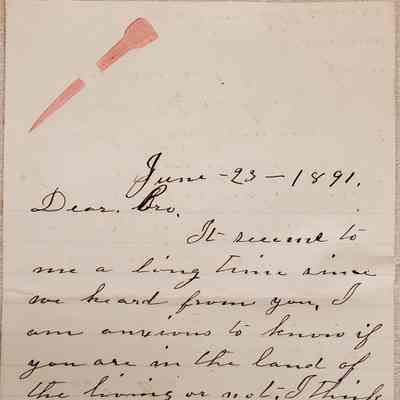 June - 23 - 1891.
Dear. Bro.
It seems to
me a long time since
we heard from you, I
am anxious to know if
you are in the land of
the living or not. I think